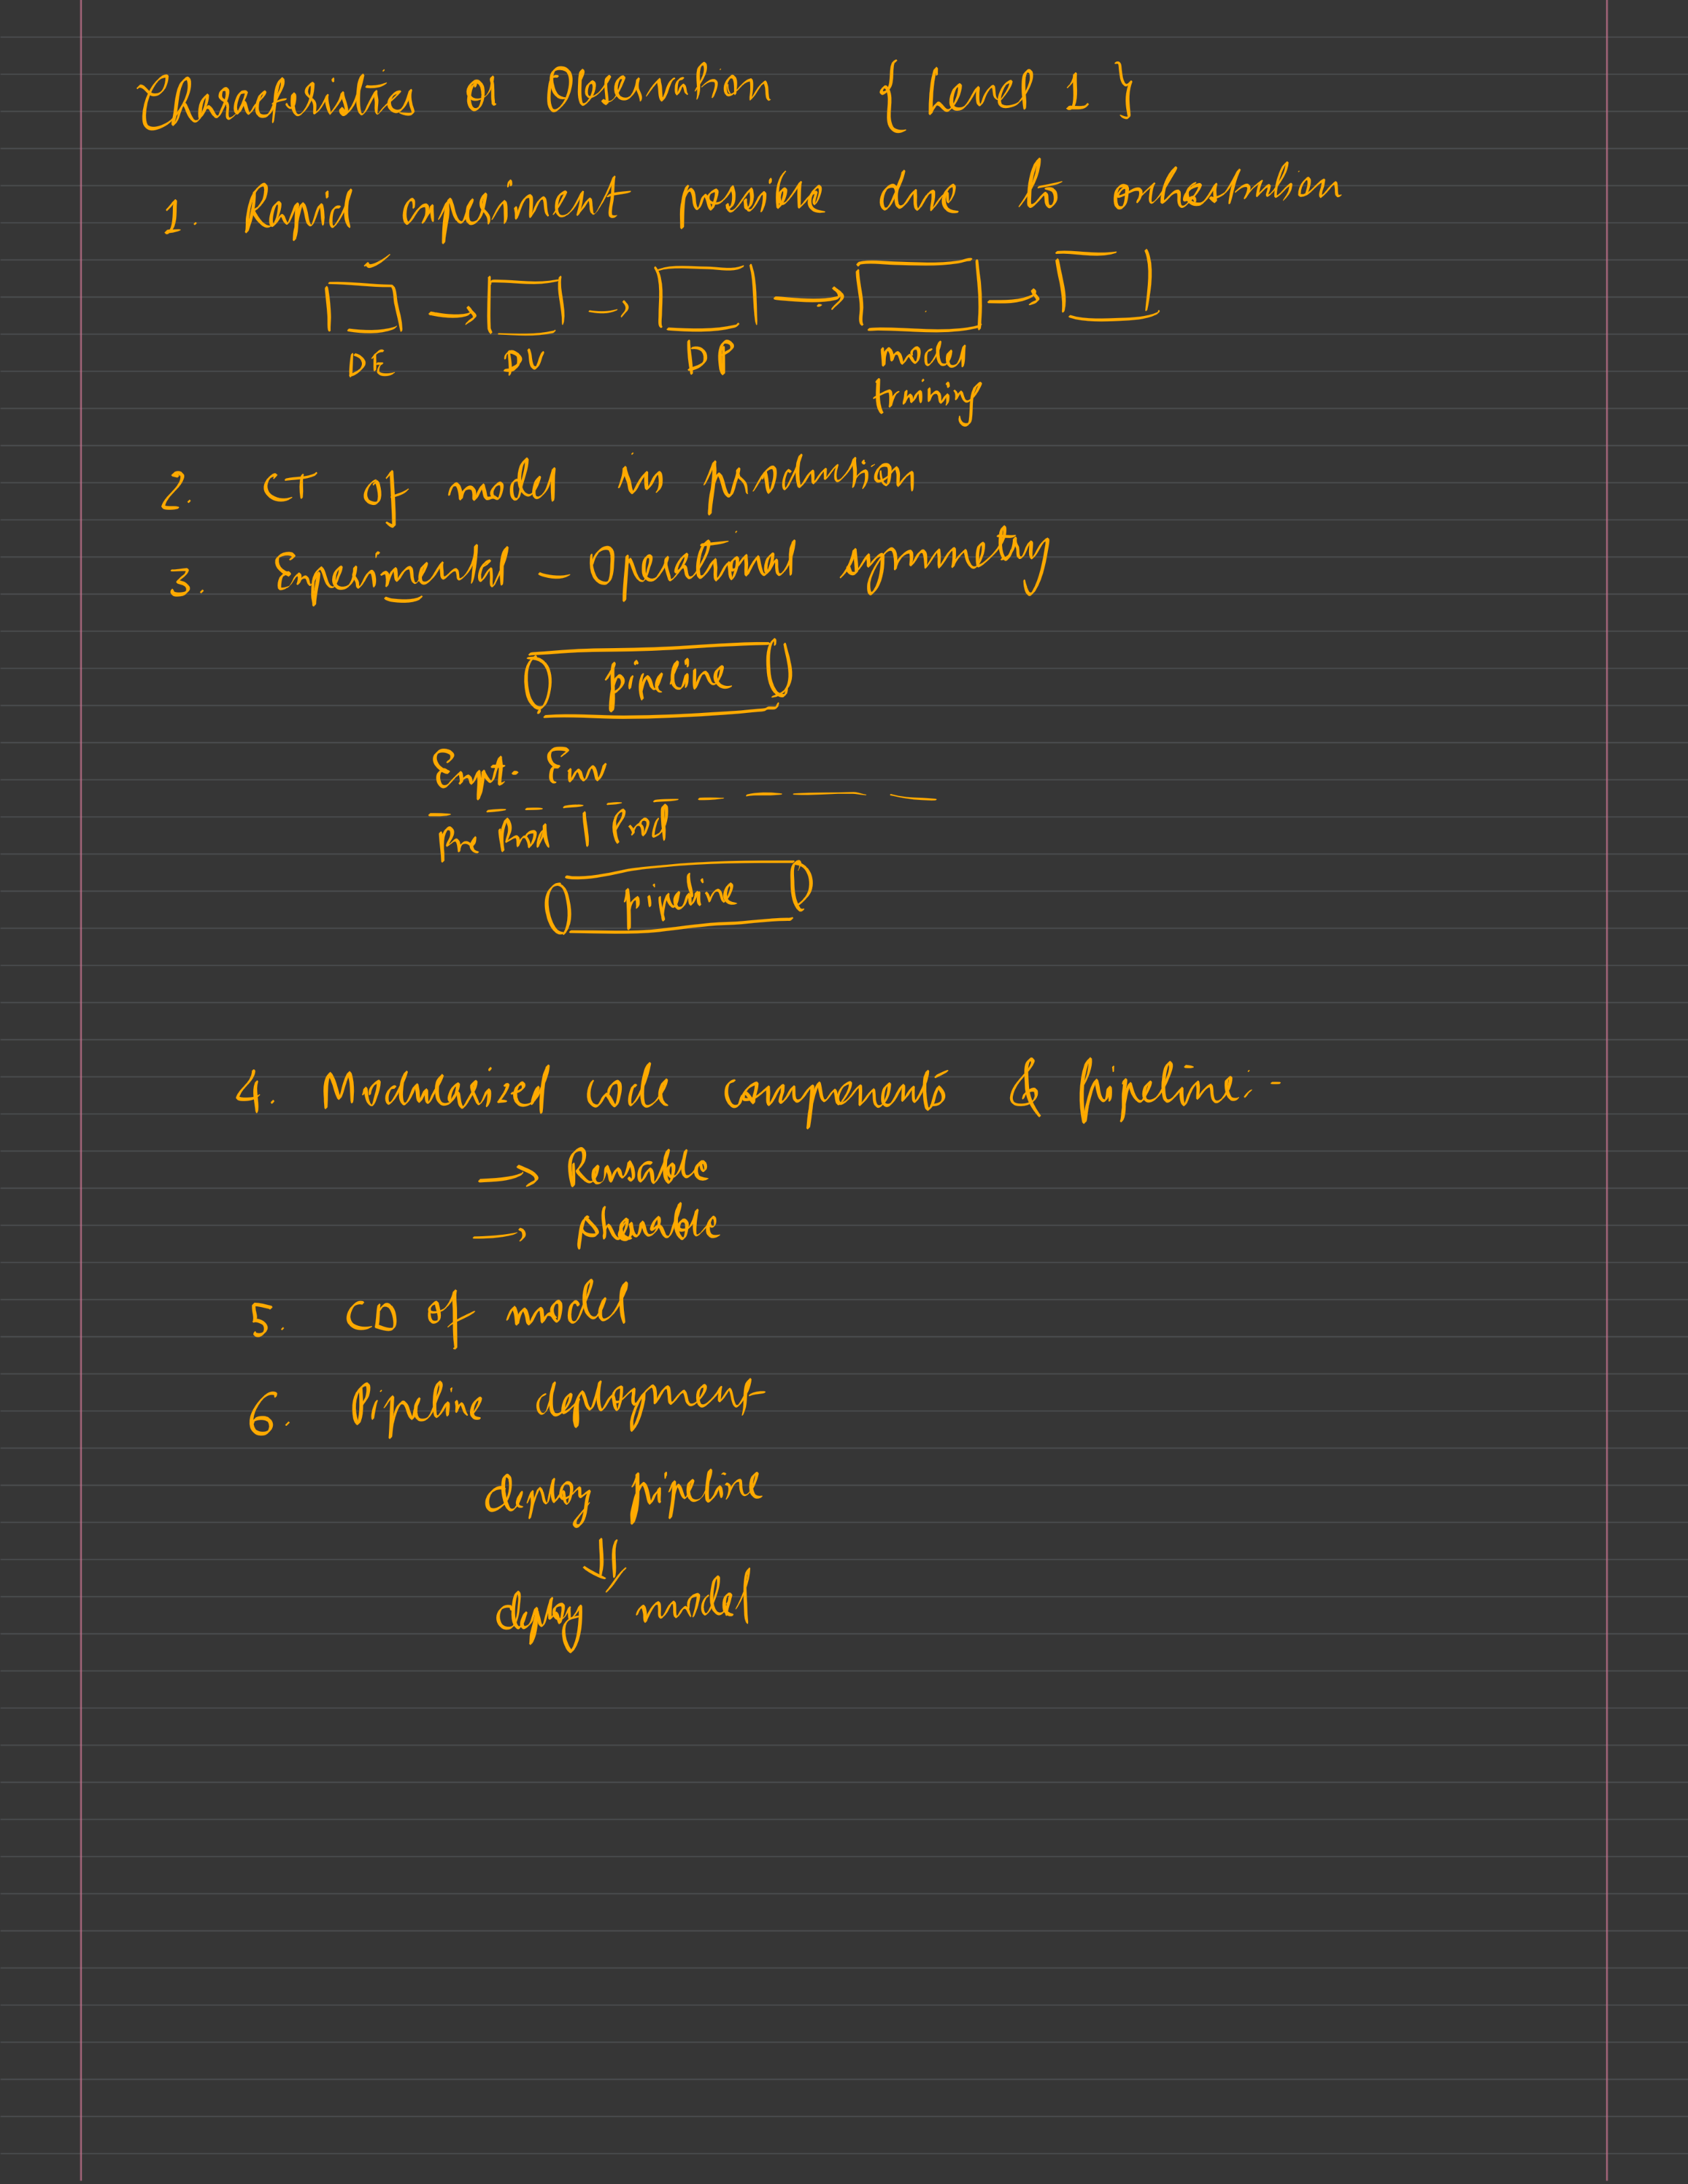 Characteristics or Observation { Level 1 }
1. Rapid experiment possible due to orchestration
DE DV DP model
training
2. CT of model in production
3. Experimental - Operational symmetry
pipeline
Expt. Env
Pre Prod | Prod
pipeline
4. Modularized code components & Pipeline:-
→ Reusable
→ Shareable
5. CD of model
6. Pipeline deployment
deploy pipeline
⇓
deploy model